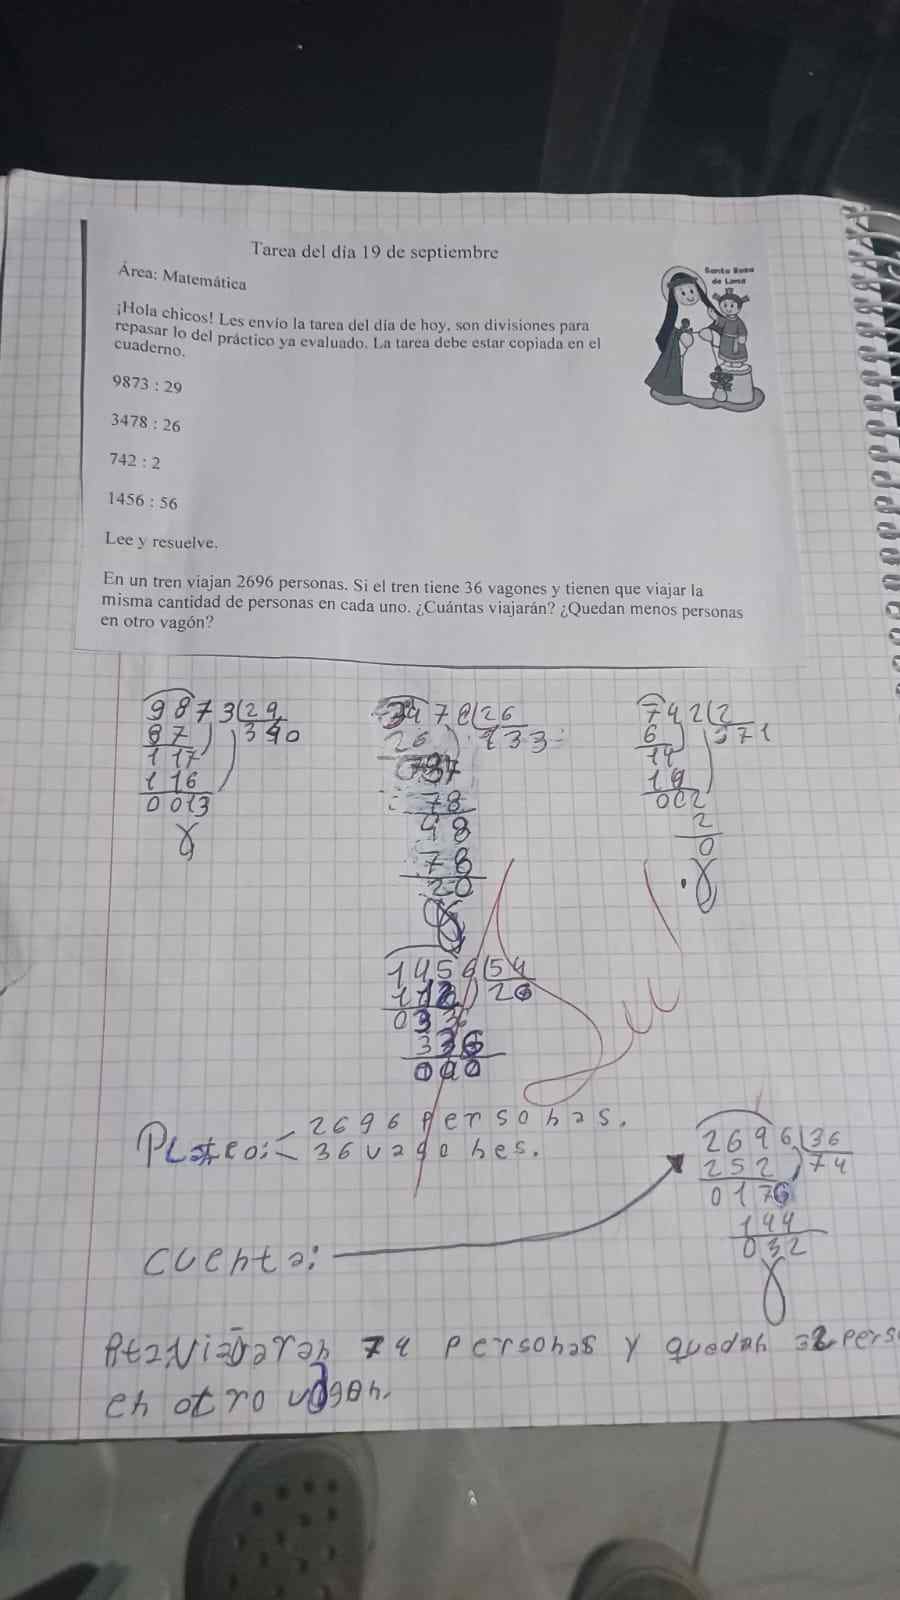 Tarea del día 19 de septiembre
Santa Rosa
de Lima
Área: Matemática
¡Hola chicos! Les envío la tarea del día de hoy, son divisiones para
repasar lo del práctico ya evaluado. La tarea debe estar copiada en el
cuaderno.
9873 : 29
3478 : 26
742 : 2
1456 : 56
Lee y resuelve.
En un tren viajan 2696 personas. Si el tren tiene 36 vagones y tienen que viajar la
misma cantidad de personas en cada uno. ¿Cuántas viajarán? ¿Quedan menos personas
en otro vagón?
9873 29
87 340
117
116
0013
3478 26
26 133
78
98
78
20
742 2
6 371
14
14
002
2
0
1456 54
112 26
0336
336
000
2696 personas.
36 vagones.
2696 36
252 74
0176
144
032
Cuenta:
74 personas y quedan 32 pers
en otro vagon.